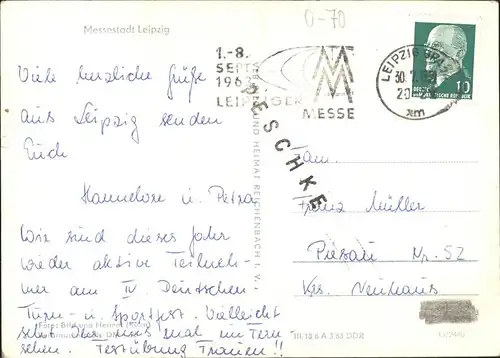 Messestadt Leipzig
0-70
1.-8.
SEPT
196
LEIPZIGER
MM
MESSE
LEIPZIG
30.
20
xm
10
DEUTSCHE DEMOKRATISCHE REPUBLIK
Viele herzliche Grüße
aus Leipzig senden
Euch
Hannelore u. Petra
Wir sind dieses Jahr
wieder aktive Teilneh-
mer am IV. Deutschen
Turn- u. Sportfest. Vielleicht
seht Ihr uns mal im Fern
sehen. Testübung Frauen!!
Foto: Bild und Heimat
UND HEIMAT REICHENBACH I. V.
PESCHKE
Fam.
Franz Müller
Piesau Nr. 52
Krs. Neuhaus
III/18 6 A 3 63 DDR